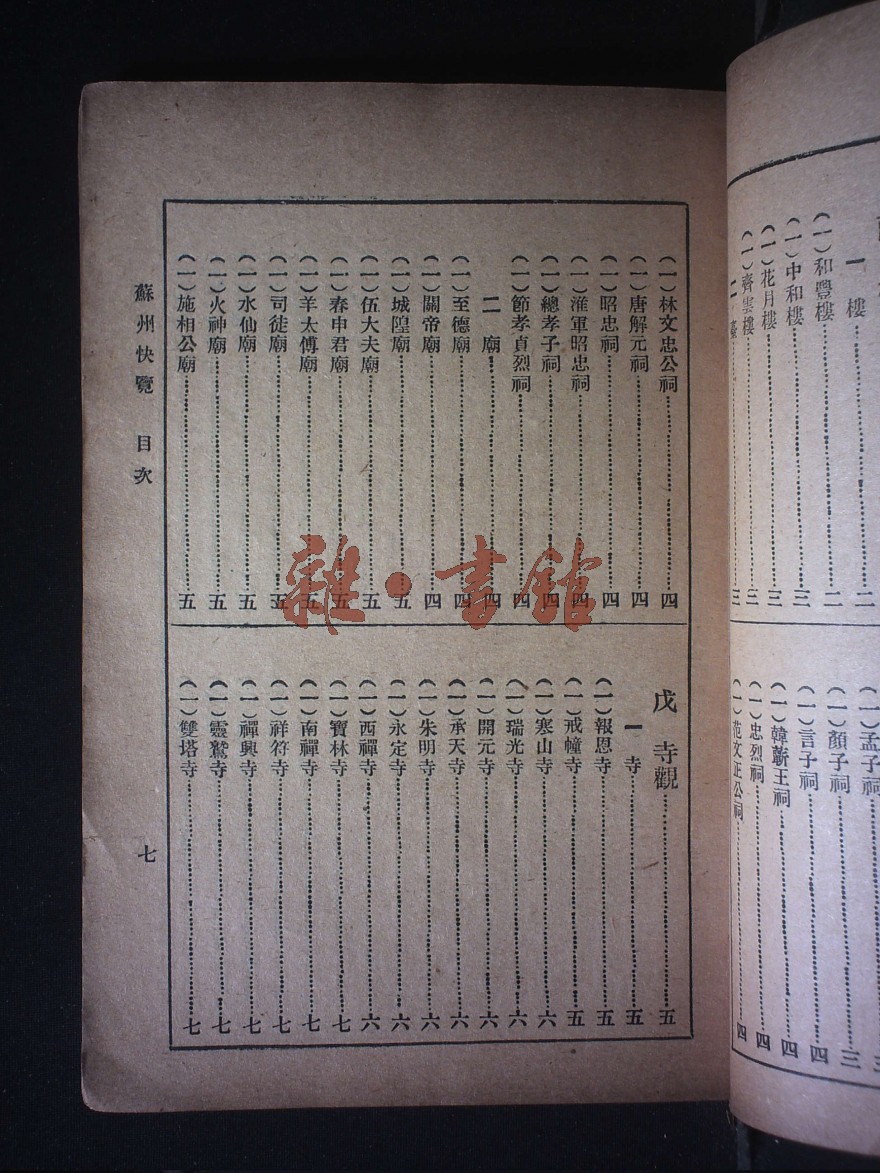 一 樓……二
(一)和豐樓……二
(一)中和樓……三
(一)花月樓……三
(一)齊雲樓……三
二 臺……三
(一)孟子祠……三
(一)顏子祠……三
(一)言子祠……四
(一)韓蘄王祠……四
(一)忠烈祠……四
(一)范文正公祠……四
(一)林文忠公祠……四
(一)唐解元祠……四
(一)昭忠祠……四
(一)淮軍昭忠祠……四
(一)總孝子祠……四
(一)節孝貞烈祠……四
二 廟……四
(一)至德廟……四
(一)關帝廟……四
(一)城隍廟……五
(一)伍大夫廟……五
(一)春申君廟……五
(一)羊太傅廟……五
(一)司徒廟……五
(一)水仙廟……五
(一)火神廟……五
(一)施相公廟……五
戊 寺觀……五
一 寺……五
(一)報恩寺……五
(一)戒幢寺……五
(一)寒山寺……六
(一)瑞光寺……六
(一)開元寺……六
(一)承天寺……六
(一)朱明寺……六
(一)永定寺……六
(一)西禪寺……六
(一)寶林寺……七
(一)南禪寺……七
(一)祥符寺……七
(一)禪興寺……七
(一)靈鷲寺……七
(一)雙塔寺……七
蘇州快覽 目次
七
雜·書館